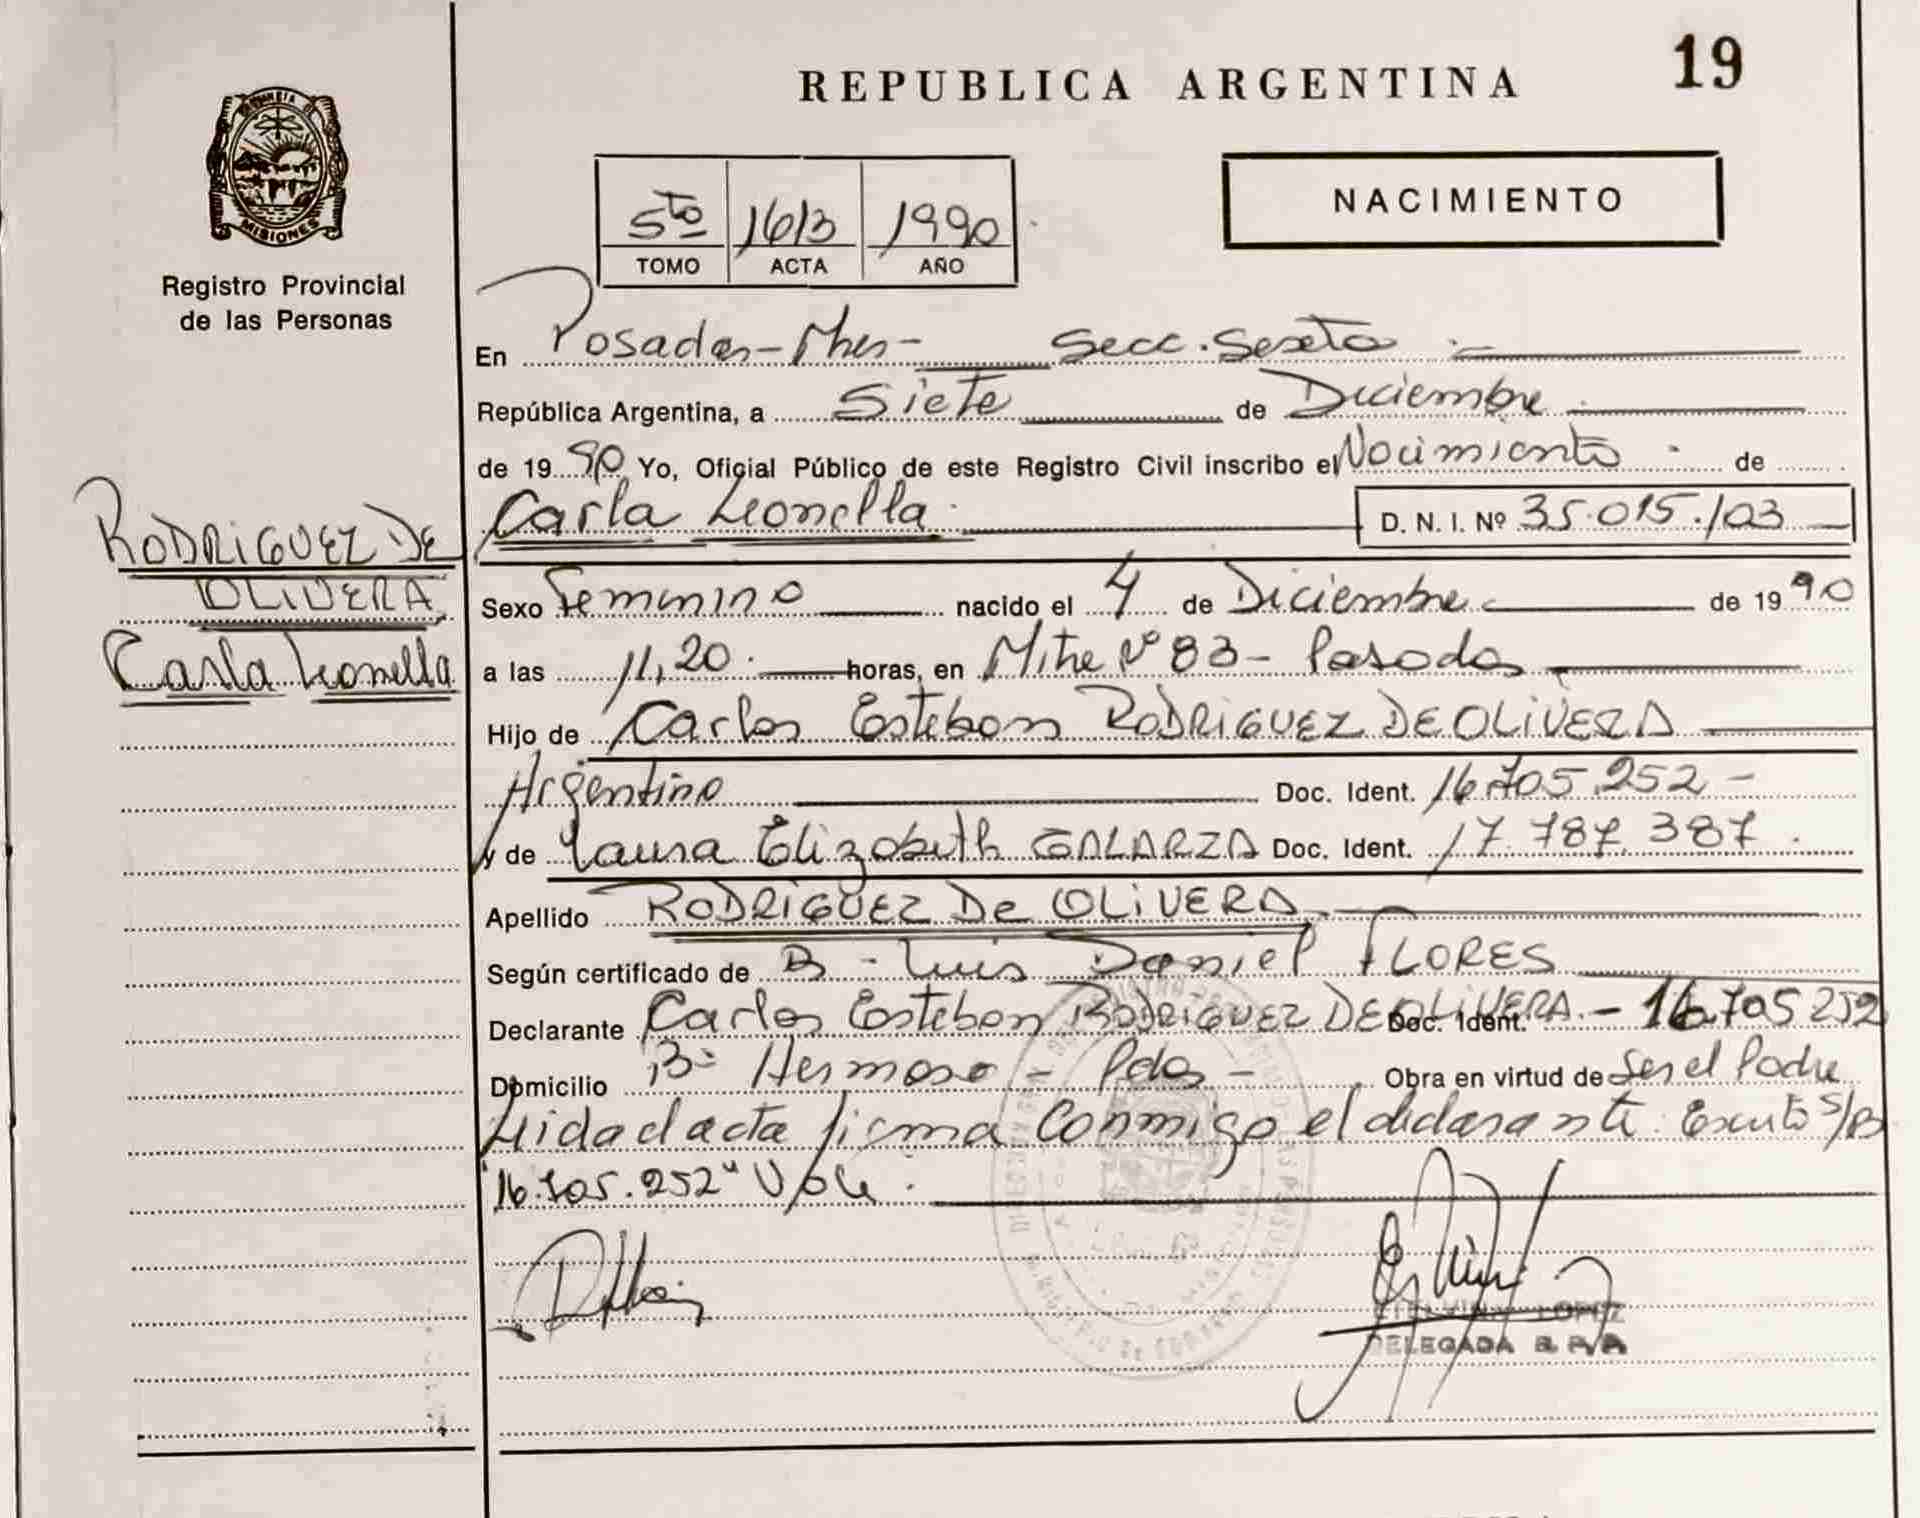 REPUBLICA ARGENTINA 19
PROVINCIA DE
MISIONES
Registro Provincial
de las Personas
5to 1613 1990
TOMO ACTA AÑO
NACIMIENTO
En Posadas - Mnes - Secc. Sexta
República Argentina, a Siete de Diciembre
de 19 90 Yo, Oficial Público de este Registro Civil inscribo el Nacimiento de
Carla Leonella D. N. I. Nº 35.015.103
RODRIGUEZ DE
OLIVERA
Carla Leonella
Sexo Femenino nacido el 4 de Diciembre de 19 90
a las 11,20 horas, en Mitre Nº 83 - Posadas
Hijo de Carlos Esteban RODRIGUEZ DE OLIVERA
Argentino Doc. Ident. 16.705.252 -
y de Laura Elizabeth GALARZA Doc. Ident. 17.787.387.
Apellido RODRIGUEZ De OLIVERA
Según certificado de B - Luis Daniel FLORES
Declarante Carlos Esteban RODRIGUEZ DE OLIVERA Doc. Ident. - 16.705252
Domicilio Bº Hermoso - Pdas - Obra en virtud de Ser el Padre
Leida el acta firma Conmigo el declarante. S/B
16.705.252" Vale.
ETELVINA LOPEZ
DELEGADA